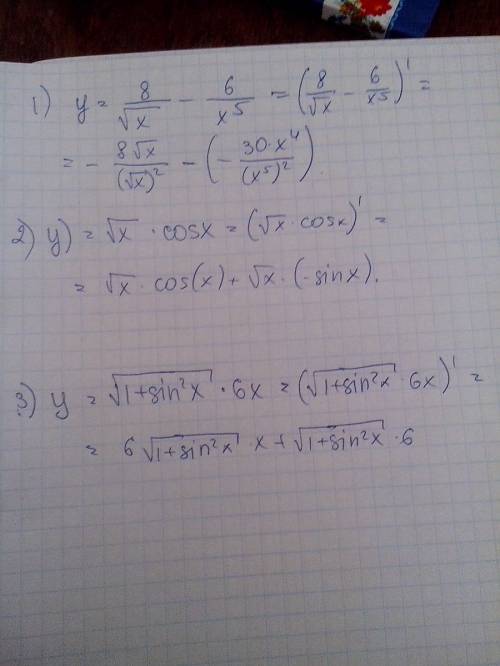 1) y = 8/√x − 6/x⁵ = (8/√x − 6/x⁵)' =
= − 8√x/(√x)² − (− 30·x⁴/(x⁵)²).
2) y) = √x · cosx = (√x · cosx)' =
= √x · cos(x) + √x · (-sinx).
3) y = √(1+sin²x) · 6x = (√(1+sin²x) · 6x)' =
= 6√(1+sin²x) · x + √(1+sin²x) · 6